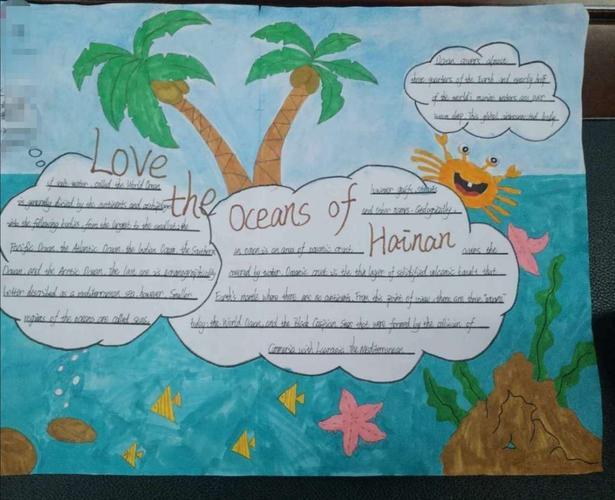 Love
the
Oceans of
Hainan
Ocean covers almost
three quarters of the Earth and nearly half
of the world's marine waters are over
deep this global interconnected body
of salt water called the World Ocean
is generally divided by the continents and
with the following bodies, from the largest to the smallest: the
Pacific Ocean, the Atlantic Ocean, the Indian Ocean, the Southern
Ocean and the Arctic Ocean, the
better described as a mediterranean sea however Smaller
regions of the oceans are called seas
however gulfs, straits
and other names. Geologically,
an ocean is an area of oceanic crust
covers the
covered by water. Oceanic crust is the thin layer of solidified volcanic basalt that
Earth's mantle where there are no continents. From this point of view, there are three "oceans"
today: the World Ocean, and the Black Caspian Seas that were formed by the collision of
with Laurasia. The Mediterranean